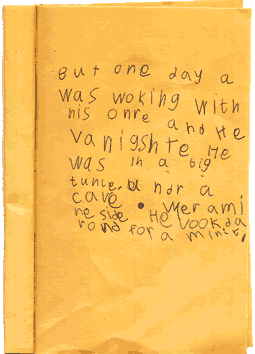 But one day a
was woking with
his onre and He
vanigshte He
was in a big
tunle. U ndr a
cave • Wer am i
he side He lookda
rond for a minit,